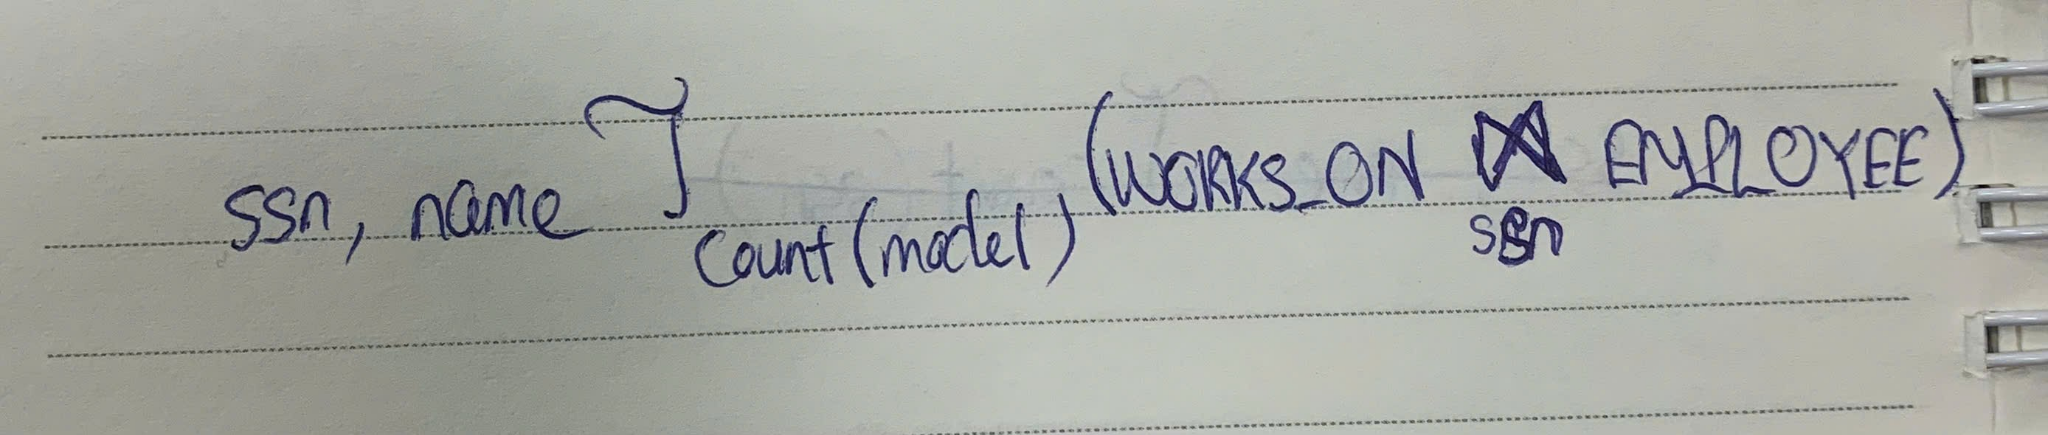 ssn, name ℑ count(model) (WORKS_ON ⋈ ssn EMPLOYEE)